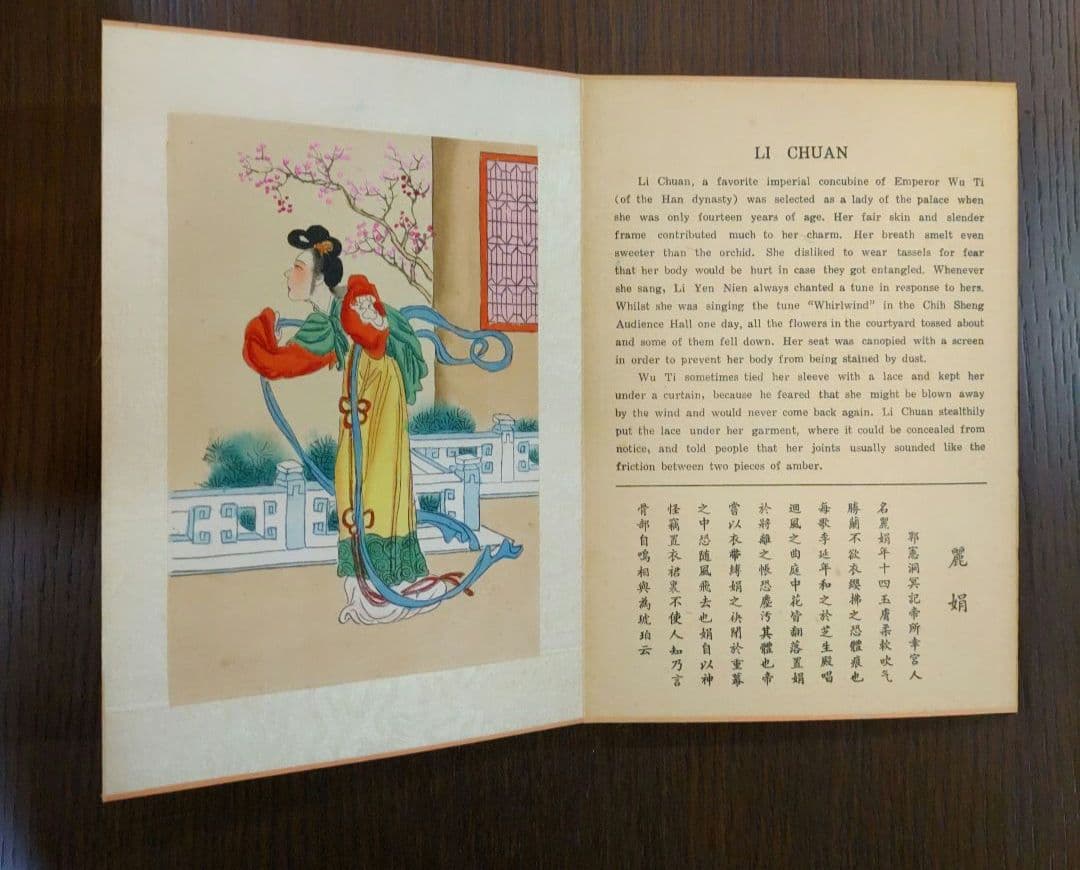 LI CHUAN
Li Chuan, a favorite imperial concubine of Emperor Wu Ti
(of the Han dynasty) was selected as a lady of the palace when
she was only fourteen years of age. Her fair skin and slender
frame contributed much to her charm. Her breath smelt even
sweeter than the orchid. She disliked to wear tassels for fear
that her body would be hurt in case they got entangled. Whenever
she sang, Li Yen Nien always chanted a tune in response to hers.
Whilst she was singing the tune “Whirlwind” in the Chih Sheng
Audience Hall one day, all the flowers in the courtyard tossed about
and some of them fell down. Her seat was canopied with a screen
in order to prevent her body from being stained by dust.
Wu Ti sometimes tied her sleeve with a lace and kept her
under a curtain, because he feared that she might be blown away
by the wind and would never come back again. Li Chuan stealthily
put the lace under her garment, where it could be concealed from
notice, and told people that her joints usually sounded like the
friction between two pieces of amber.
麗娟
郭憲洞冥記帝所幸宮人
名麗娟年十四玉膚柔軟吹气
勝蘭不欲衣纓拂之恐體痕也
每歌李延年和之於芝生殿唱
迴風之曲庭中花皆翻落置娟
於將離之帳恐塵汚其體也帝
嘗以衣帶縛娟之袂閉於重幕
之中恐随風飛去也娟自以神
怪竊置衣裙裏不使人知乃言
骨部自鳴相與為琥珀云